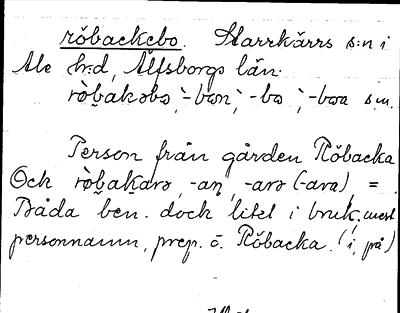 röbackebo. Starrkärrs s:n i
Ale h:d, Älfsborgs län.
röbakəbo, -bən, -bo, -boa s.m.
Person från gården Röbacka
Och röbakarə, -aṇ, -arə (-ara), =.
Båda ben. dock litet i bruk, mest
personnamn, prep. o. Röbacka. (i, på)